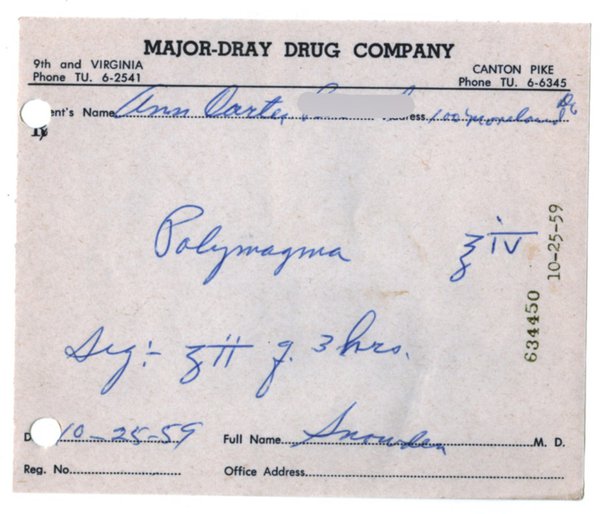 MAJOR-DRAY DRUG COMPANY
9th and VIRGINIA
Phone TU. 6-2541
CANTON PIKE
Phone TU. 6-6345
ent's Name Ann Carter ress 100 Moreland
Polymagma ℥iv
634450 10-25-59
Sig:- ʒii q. 3 hrs.
D 10-25-59 Full Name Snowden M. D.
Reg. No. Office Address